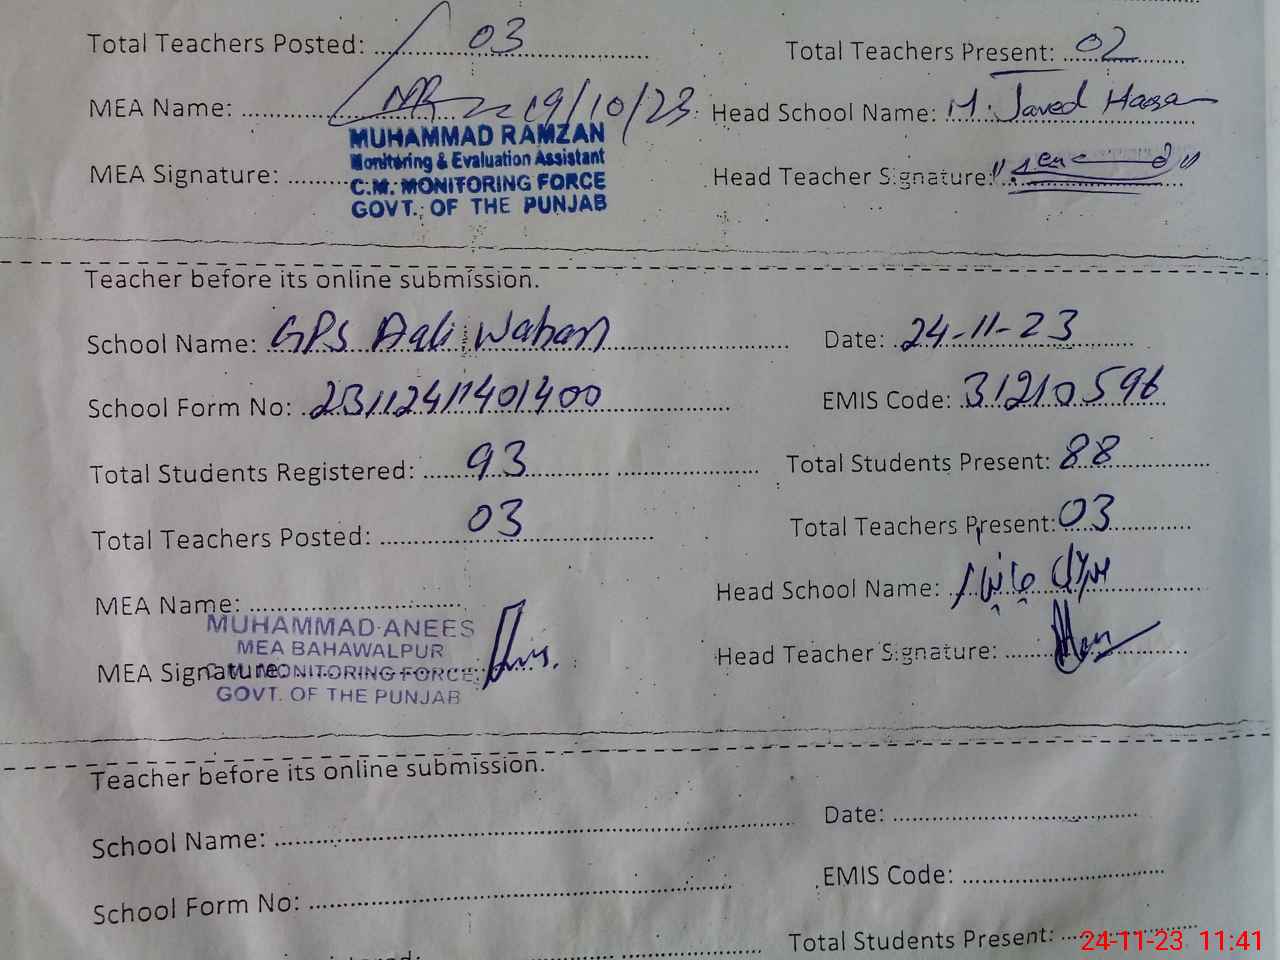 Total Teachers Posted: 03 Total Teachers Present: 02
MEA Name: 19/10/23 Head School Name: M. Javed Hassan
MUHAMMAD RAMZAN
Monitoring & Evaluation Assistant
MEA Signature: Head Teacher Signature:
C.M. MONITORING FORCE
GOVT. OF THE PUNJAB
Teacher before its online submission.
School Name: GPS Aali Wahan Date: 24-11-23
School Form No: 23112411401400 EMIS Code: 31210596
Total Students Registered: 93 Total Students Present: 88
Total Teachers Posted: 03 Total Teachers Present: 03
MEA Name: Head School Name:
MUHAMMAD ANEES
MEA BAHAWALPUR
MEA Signature: Head Teacher Signature:
MONITORING FORCE
GOVT. OF THE PUNJAB
Teacher before its online submission.
School Name: Date:
School Form No: EMIS Code:
Total Students Present:
24-11-23 11:41